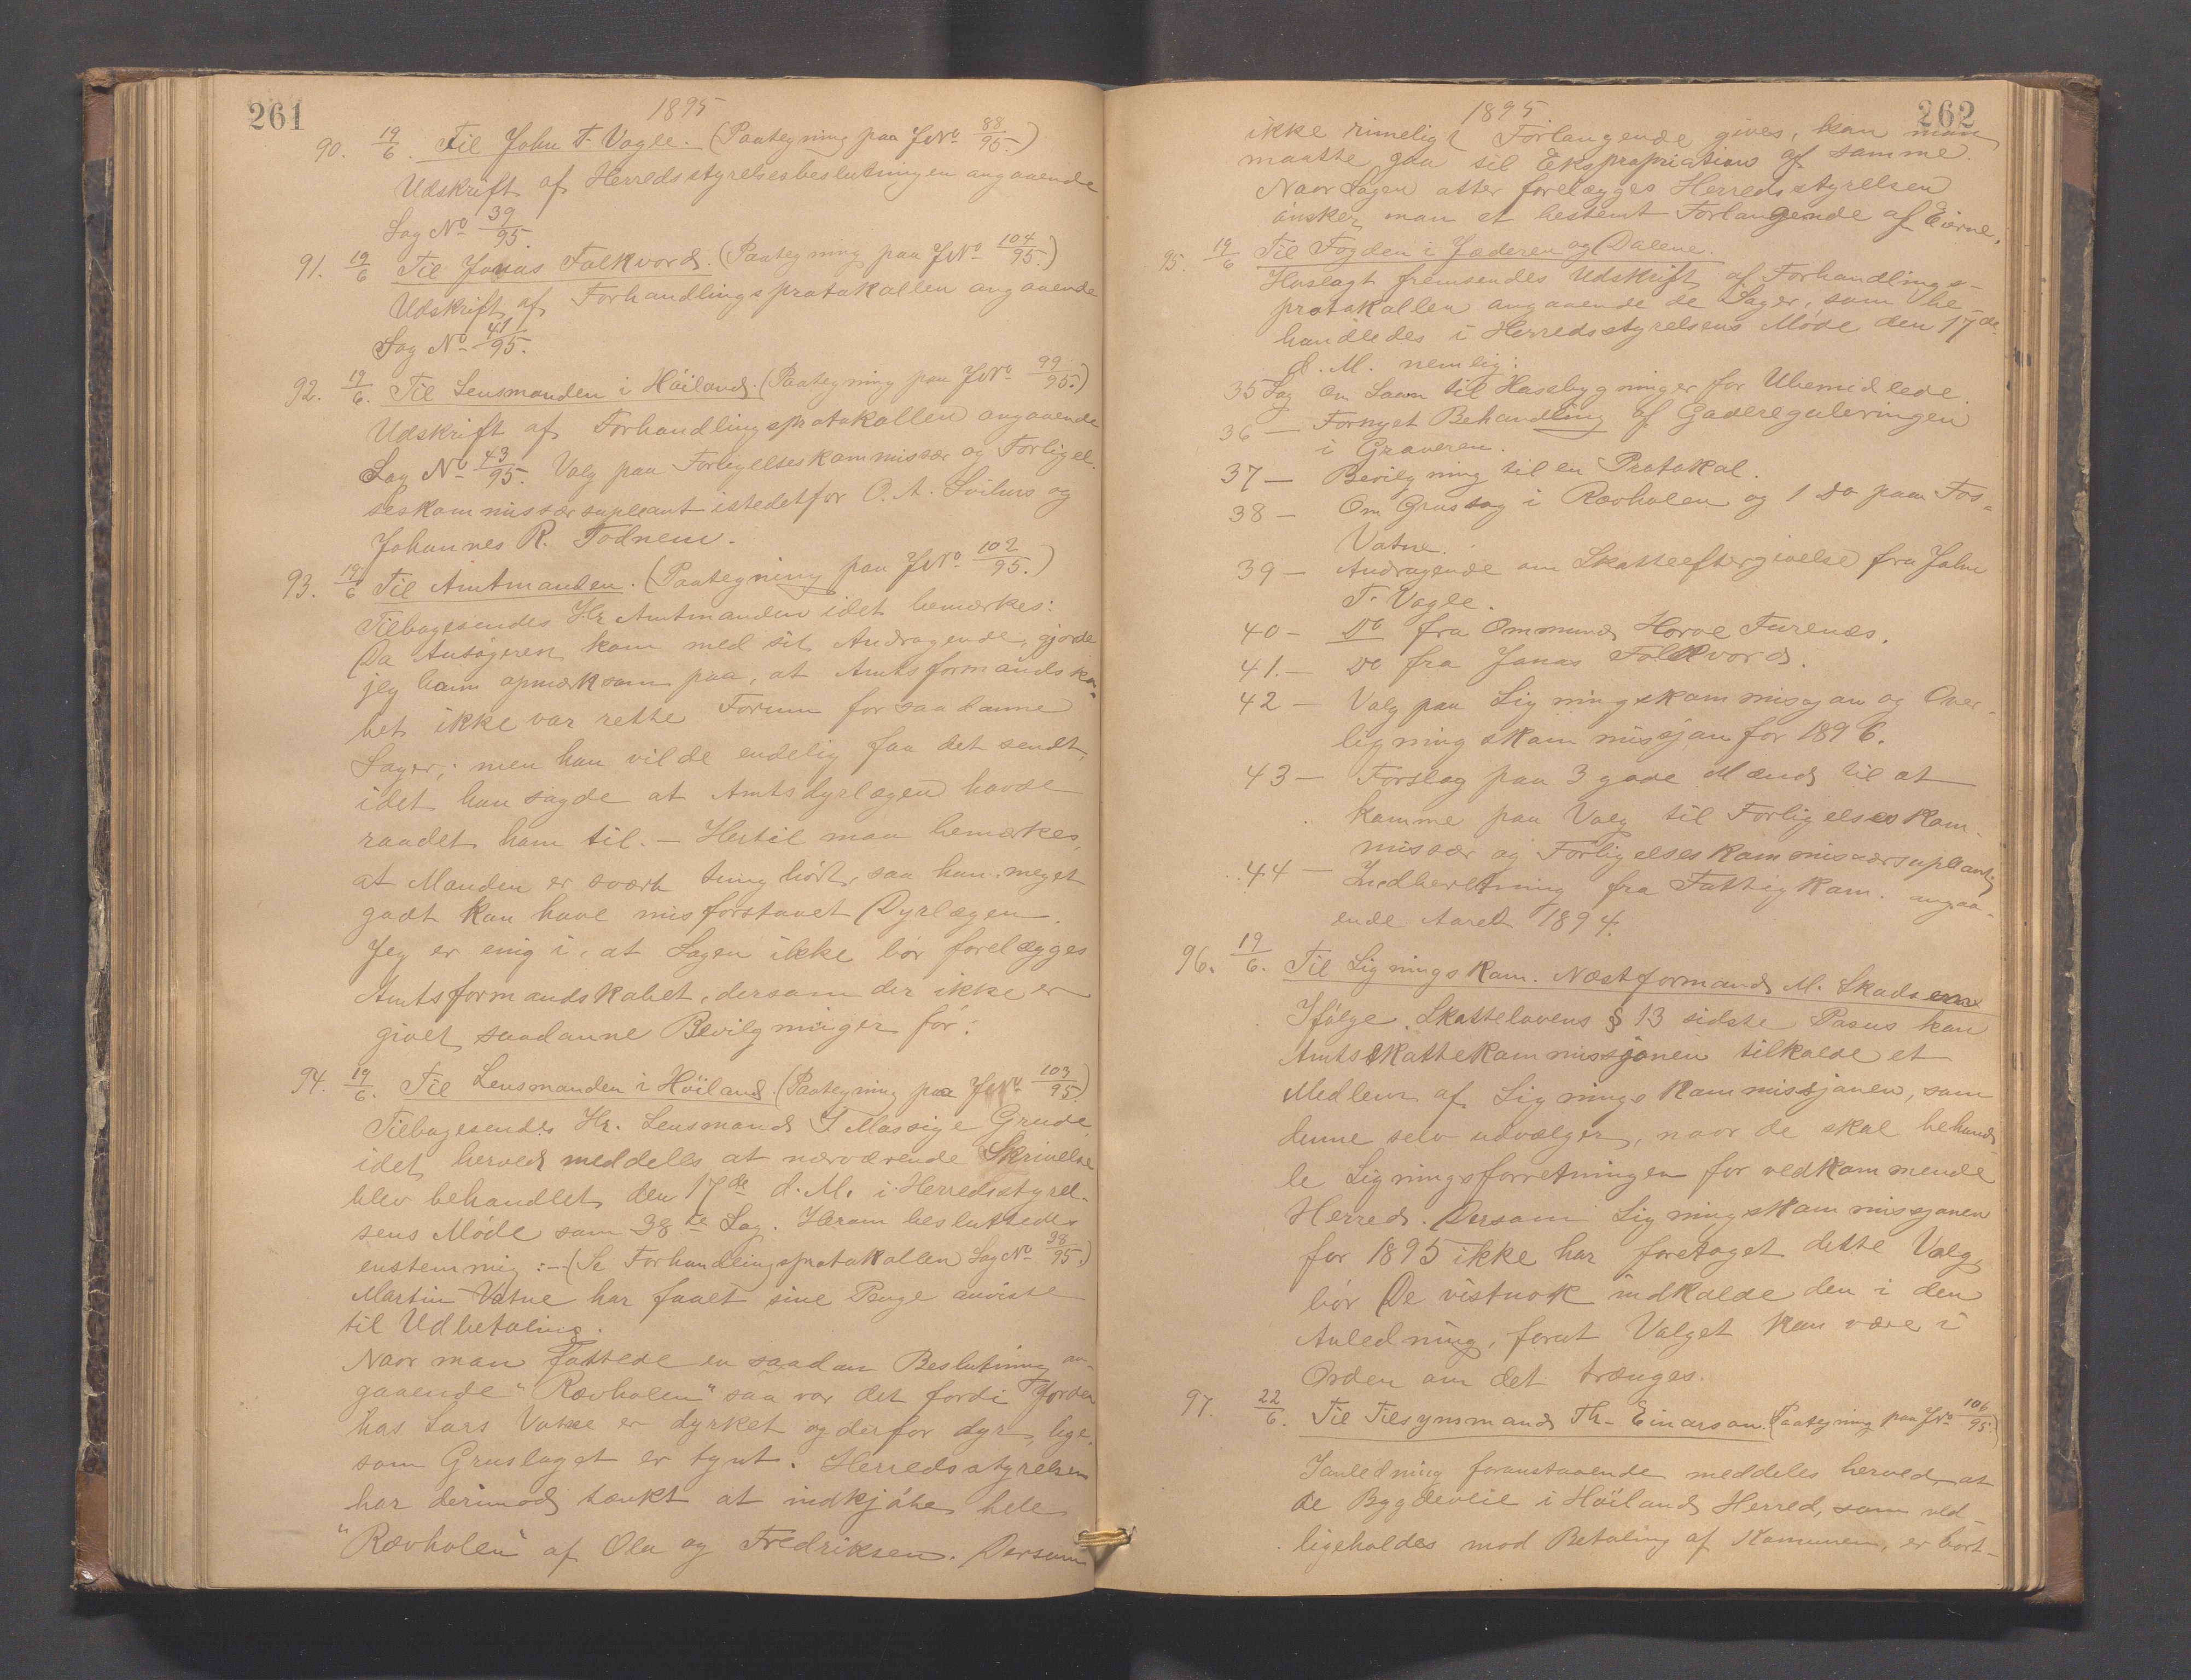 261
1895
90. 19/6. Til John T. Vagle. (Paategning paa JNo 88/95.)
Udskrift af Herredsstyrelsesbeslutningen angaaende
Sag No 39/95.
91. 19/6 Til Jonas Folkvord. (Paategning paa JNo 104/95.)
Udskrift af Forhandlingsprotokollen angaaende
Sag No 41/95.
92. 19/6. Til Lensmanden i Höiland. (Paategning paa JNo 99/95.)
Udskrift af Forhandlingsprotokollen angaaende
Sag No 43/95. Valg paa Forligelseskommissær og Forligel-
seskommissærsupleant istedetfor O. A. and
Johannes R. Todnem.
93. 19/6 Til Amtmanden. (Paategning paa JNo 102/95.)
Tilbagesendes Hr. Amtmanden idet bemærkes:
Da Ansögeren kom med sit Andragende, gjorde
jeg ham opmærksom paa, at Amtsformandska-
bet ikke var rette Forum for saadanne
Sager; men han vilde endelig faa det sendt,
idet han sagde at Amtsdyrlægen havde
raadet ham til. – Hertil maa bemærkes,
at Manden er svært tunghört, saa han meget
godt kan have misforstaaet Dyrlægen.
Jeg er enig i, at Sagen ikke bör forelægges
Amtsformandskabet, dersom der ikke er
givet saadanne Bevilgninger för.
94. 19/6. Til Lensmanden i Höiland. (Paategning paa JNo 103/95.)
Tilbagesendes Hr. Lensmand T. Massige Grude
idet herved meddeles at nærværende Skrivelse
blev behandlet den 17de d. M. i Herredsstyrel-
sens Möde som 38te Sag. Herom besluttedes
enstemmig: – (Se Forhandlingsprotokollen Sag No 38/95.)
Martin Vatne har faaet sine Penge anviste
til Udbetaling.
Naar man fattede en saadan Beslutning an-
gaaende "Rævholen" saa var det fordi Jorden
hos Lars Vatne er dyrket og derfor dyr, lige-
som Gruslaget er tynt. Herredsstyrelsen
har derimod tænkt at indkjöbe hele
"Rævholen" af Ola og Fredriksen. Dersom
262
1895
ikke rimeligt Forlangende gives, kan man
maatte gaa til Ekspropriation af samme.
Naar Sagen atter forelægges Herredsstyrelsen
önsker man et bestemt Forlangende af Eierne.
95. 19/6 Til Fogden i Jæderen og Dalene.
Hoslagt fremsendes Udskrift af Forhandlings-
protokollen angaaende de Sager, som be-
handledes i Herredsstyrelsens Möde den 17de
d. M. nemlig:
35 Sag Om Laan til Husebygninger for Ubemidlede.
36 – Fornyet Behandling af Gadereguleringen
i Graveren.
37 – Bevilgning til en Protokol.
38 – Om Grustag i Rævholen og 1 Do paa Fos-
Vatne.
39 – Andragende om Skatteeftergivelse fra John
T. Vagle.
40 – Do fra Ommund Hove Furenæs.
41. – Do fra Jonas Folkvord.
42 – Valg paa Ligningskommissjon og Over-
ligningskommissjon for 1896.
43 – Forslag paa 3 gode Mænd til at
komme paa Valg til Forligelseskom-
missær og Forligelseskommissærsupleant
44 – Indberetning fra Fattigkom. angaa-
ende Aaret 1894.
96. 19/6. Til Ligningskom. Næstformand M. Skadsem
Ifölge Skattelovens § 13 sidste Pasus kan
Amtsskattekommissjonen tilkalde et
Medlem af Ligningskommissjonen, som
denne selv udvælger, naar de skal behand-
le Ligningsforretningen for vedkommende
Herred. Dersom Ligningskommissjonen
for 1895 ikke har foretaget dette Valg,
bör De vistnok indkalde den i den
Anledning, forat Valget kan være i
Orden om det trænges.
97. 22/6. Til Tilsynsmand Th. Einarson. (Paategning paa JNo 106/95.)
I anledning foranstaaende meddeles herved, at
de Bygdeveie i Höiland Herred, som ved-
ligeholdes mod Betaling af Kommunen, er bort-